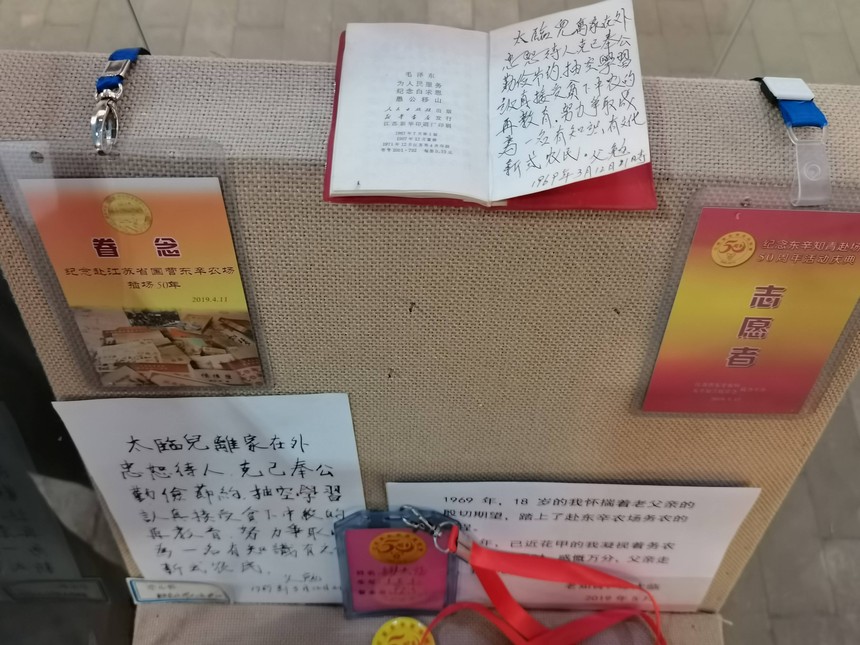 毛泽东
为人民服务
纪念白求恩
愚公移山
人民出版社出版
新华书店发行
太臨兒离家在外
忠恕待人克己奉公
勤俭节约.抽空學習
认真接受貧下中农的
再教育.努力争取成
爲一名有知識.有文化
新式农民。父
1969年3月12日
眷念
纪念赴江苏省国营东辛农场
插场50年
2019.4.11
50
纪念东辛知青赴场
50周年活动庆典
志愿者
太臨兒離家在外
忠恕待人.克己奉公
勤儉節約.抽空學習
认真接受貧下中农的
再教育.努力争取
爲一名有知識有文
新式农民。
1969 年，18 岁的我怀揣着老父亲的
殷切期望，踏上了赴东辛农场务农的
程。
年，已近花甲的我凝视着务农
感慨万分，父亲走
2019 年
50
50